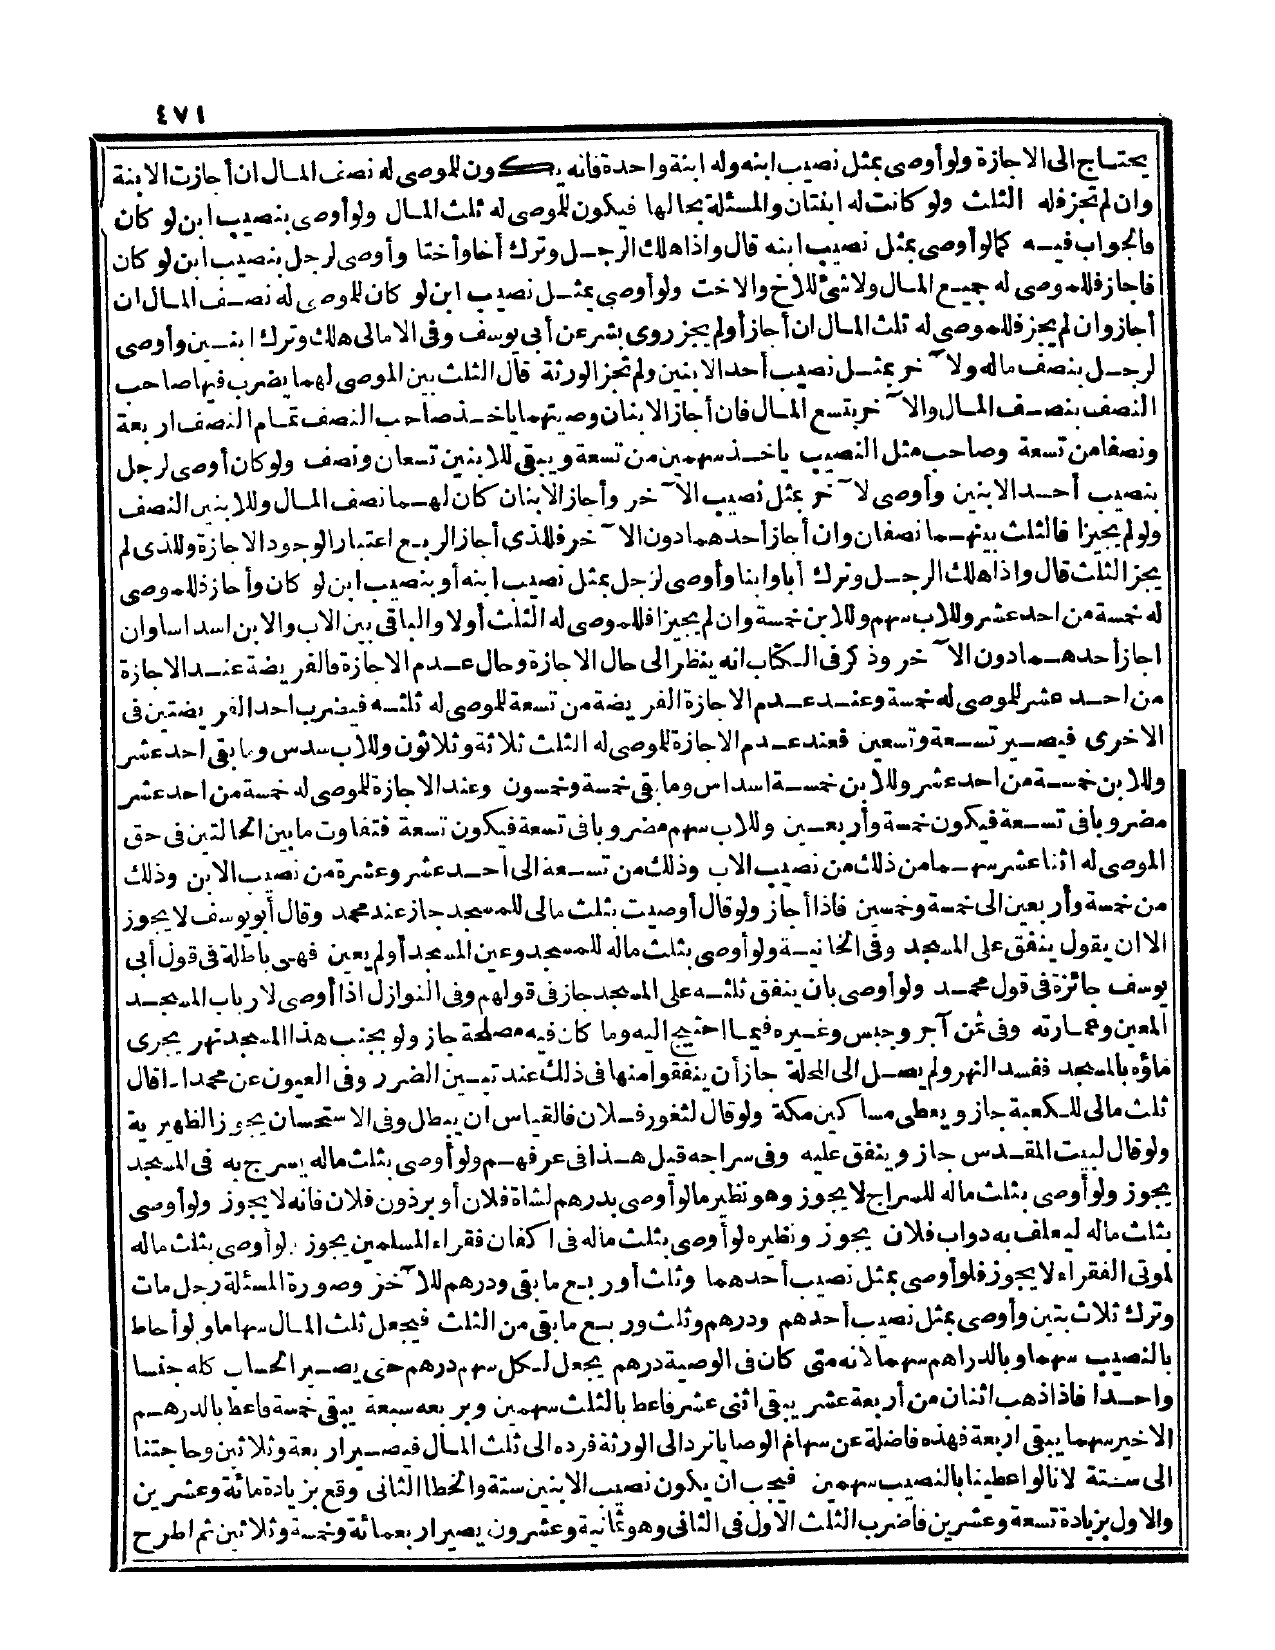 ٤٧١
يحتاج الى الاجازة ولو أوصى بمثل نصيب ابنه وله ابنة واحدة فانه يكون للموصى له نصف المال ان أجازت الابنة
وان لم تجز فله الثلث ولو كانت له ابنتان والمسئلة بحالها فيكون للموصى له ثلث المال ولو أوصى بنصيب ابن لو كان
فالجواب فيه كما لو أوصى بمثل نصيب ابنه قال واذا هلك الرجل وترك أخا وأختا وأوصى لرجل بنصيب ابن لو كان
فاجاز فللموصى له جميع المال ولا شئ للاخ والاخت ولو أوصى بمثل نصيب ابن لو كان للموصى له نصف المال ان
أجاز وان لم يجز فللموصى له ثلث المال ان أجاز أو لم يجز روى بشر عن أبى يوسف وفى الامالى هلك وترك ابنين وأوصى
لرجل بنصف ماله ولآخر بمثل نصيب أحد الابنين ولم تجز الورثة قال الثلث بين الموصى لهما يضرب فيها صاحب
النصف بنصف المال والآخر بتسع المال فان أجاز الابنان وصيتهما ياخذ صاحب النصف تمام النصف اربعة
ونصفا من تسعة وصاحب مثل النصيب ياخذ سهمين من تسعة ويبقى للابنين تسعان ونصف ولو كان أوصى لرجل
بنصيب أحد الابنين وأوصى لآخر بمثل نصيب الآخر وأجاز الابنان كان لهما نصف المال وللابنين النصف
ولو لم يجيزا فالثلث بينهما نصفان وان أجاز أحدهما دون الآخر فللذى أجاز الربع اعتبار الوجود الاجازة وللذى لم
يجز الثلث قال واذا هلك الرجل وترك أبا وابنا وأوصى لرجل بمثل نصيب ابنه أو بنصيب ابن لو كان وأجاز فللموصى
له خمسة من احد عشر وللاب سهم وللابن خمسة وان لم يجيزا فللموصى له الثلث أولا والباقى بين الاب والابن اسداسا وان
اجاز أحدهما دون الآخر وذكر فى الكتاب انه ينظر الى حال الاجازة وحال عدم الاجازة فالفريضة عند الاجازة
من احد عشر للموصى له خمسة وعند عدم الاجازة الفريضة من تسعة للموصى له ثلثه فيضرب احد الفريضتين فى
الاخرى فيصير تسعة وتسعين فعند عدم الاجازة للموصى له الثلث ثلاثة وثلاثون وللاب سدس وما بقى احد عشر
وللابن خمسة من احد عشر وللابن خمسة اسداس وما بقى خمسة وخمسون وعند الاجازة للموصى له خمسة من احد عشر
مضروبا فى تسعة فيكون خمسة وأربعين وللاب سهم مضروبا فى تسعة فيكون تسعة فتفاوت ما بين الحالتين فى حق
الموصى له اثنا عشر سهما من ذلك من نصيب الاب وذلك من تسعة الى احد عشر وعشرة من نصيب الابن وذلك
من خمسة وأربعين الى خمسة وخمسين فاذا أجاز ولو قال أوصيت بثلث مالى للمسجد جاز عند محمد وقال أبو يوسف لا يجوز
الا ان يقول ينفق على المسجد وفى الخانية ولو أوصى بثلث ماله للمسجد وعين المسجد أو لم يعين فهى باطلة فى قول أبى
يوسف جائزة فى قول محمد ولو أوصى بان ينفق ثلثه على المسجد جاز فى قولهم وفى النوازل اذا أوصى لارباب المسجد
المعين وعمارته وفى ثمن آجر وجبس وغيره فيما احتيج اليه وما كان فيه مصلحة جاز ولو بجنب هذا المسجد نهر يجرى
ماؤه بالمسجد ففسد النهر ولم يصل الى المحلة جاز أن ينفقوا منها فى ذلك عند تبين الضرر وفى العيون عن محمد اذا قال
ثلث مالى للكعبة جاز ويعطى مساكين مكة ولو قال لثغور فلان فالقياس ان يبطل وفى الاستحسان يجوز الظهيرية
ولو قال لبيت المقدس جاز وينفق عليه وفى سراجه قيل هذا فى عرفهم ولو أوصى بثلث ماله يسرج به فى المسجد
يجوز ولو أوصى بثلث ماله للسراج لا يجوز وهو نظير ما لو أوصى بدرهم لشاة فلان أو برذون فلان فانه لا يجوز ولو أوصى
بثلث ماله ليعلف به دواب فلان يجوز ونظيره لو أوصى بثلث ماله فى اكفان فقراء المسلمين يجوز ولو أوصى بثلث ماله
لموتى الفقراء لا يجوز فلو أوصى بمثل نصيب أحدهما وثلث أو ربع ما بقى ودرهم للآخر وصورة المسئلة رجل مات
وترك ثلاث بنين وأوصى بمثل نصيب أحدهم ودرهم وثلث وربع ما بقى من الثلث فيجعل ثلث المال سهاما ولو أحاط
بالنصيب سهما وبالدراهم سهما لانه متى كان فى الوصية درهم يجعل لكل سهم درهم حتى يصير الحساب كله جنسا
واحدا فاذا ذهب اثنان من أربعة عشر يبقى اثنى عشر فاعط بالثلث سهمين وبربعه سبعة يبقى خمسة فاعط بالدرهم
الاخير سهما يبقى اربعة فهذه فاضلة عن سهام الوصايا ترد الى الورثة فرده الى ثلث المال فيصير اربعة وثلاثين وحاجتنا
الى ستة لانا لو اعطينا بالنصيب سهمين فيجب ان يكون نصيب الابنين ستة والخطا الثانى وقع بزيادة مائة وعشرين
والاول بزيادة تسعة وعشرين فاضرب الثلث الاول فى الثانى وهو ثمانية وعشرون يصير اربعمائة وخمسة وثلاثين ثم اطرح